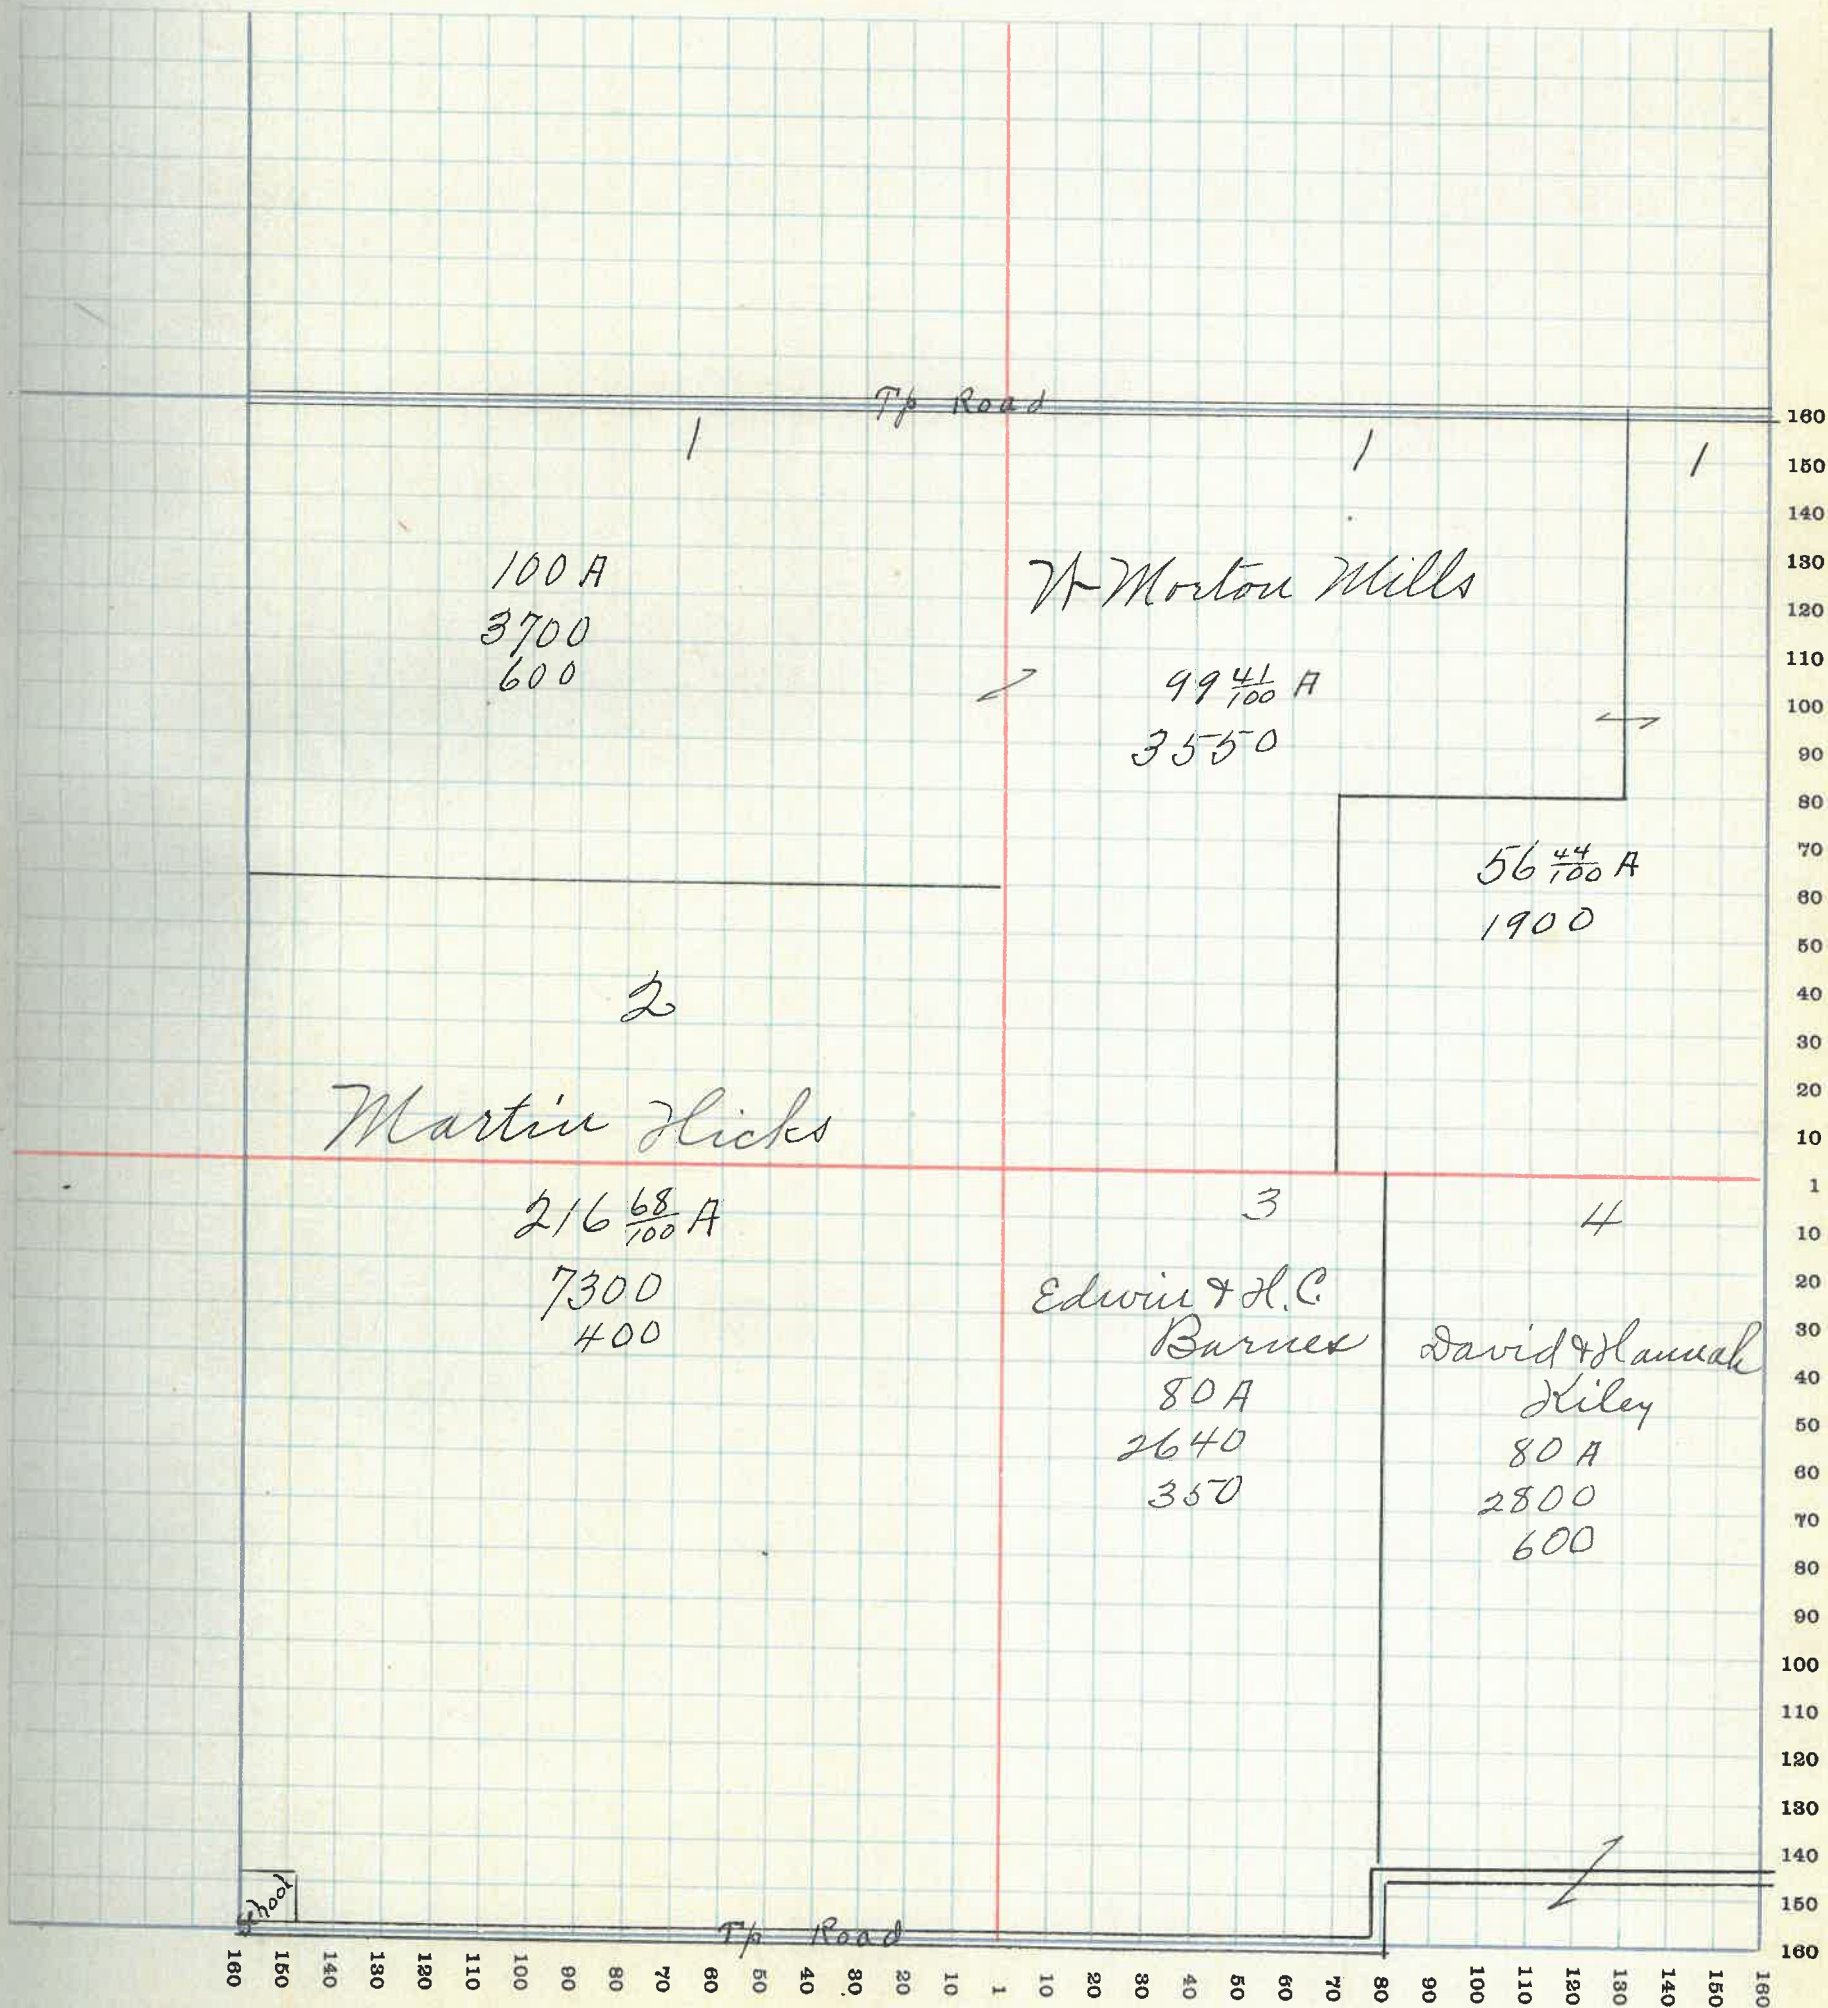 Tp Road
1
1
1
100 A
3700
600
W Morton Mills
99 41/100 A
3550
56 44/100 A
1900
2
Martin Hicks
216 68/100 A
7300
400
3
Edwin & H.C.
Barnes
80 A
2640
350
4
David & Hannah
Kiley
80 A
2800
600
School
Tp Road
160
150
140
130
120
110
100
90
80
70
60
50
40
30
20
10
1
10
20
30
40
50
60
70
80
90
100
110
120
130
140
150
160
160 150 140 130 120 110 100 90 80 70 60 50 40 30 20 10 1 10 20 30 40 50 60 70 80 90 100 110 120 130 140 150 160